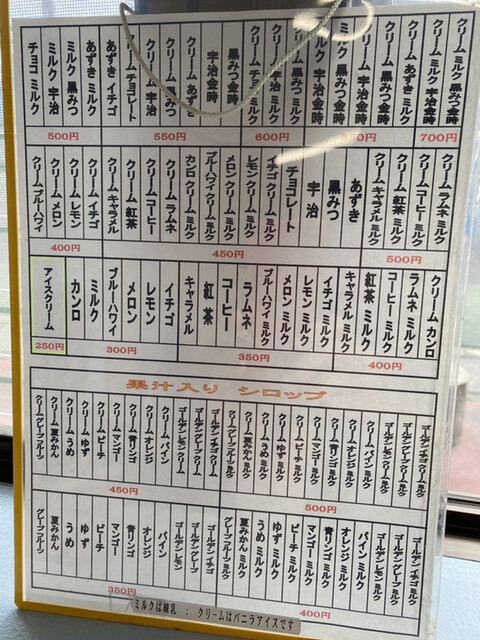 クリーム ミルク 黒みつ金時
クリーム ミルク 宇治金時
700円
クリーム あずき ミルク
クリーム 黒みつ金時
クリーム 宇治金時
ミルク 黒みつ金時
ミルク 宇治金時
クリーム 黒みつ ミルク
クリーム 宇治 ミルク
クリーム チョコ ミルク
600円
黒みつ金時
宇治金時
クリーム あずき
クリーム 黒みつ
クリーム 宇治
クリーム チョコレート
550円
あずき イチゴ
あずき ミルク
ミルク 黒みつ
ミルク 宇治
チョコ ミルク
500円
クリーム ラムネ ミルク
クリームコーヒーミルク
クリーム 紅茶 ミルク
クリーム キャラメル ミルク
500円
あずき
黒みつ
宇治
チョコレート
イチゴ クリーム ミルク
レモン クリーム ミルク
メロン クリーム ミルク
ブルーハワイ クリーム ミルク
カンロ クリーム ミルク
クリーム ラムネ
クリーム コーヒー
クリーム 紅茶
クリーム キャラメル
450円
クリーム イチゴ
クリーム レモン
クリーム メロン
クリーム ブルーハワイ
400円
クリーム カンロ
ラムネ ミルク
コーヒー ミルク
紅茶 ミルク
400円
キャラメル ミルク
イチゴ ミルク
レモン ミルク
メロン ミルク
ブルーハワイ ミルク
ラムネ
コーヒー
紅茶
キャラメル
350円
イチゴ
レモン
メロン
ブルーハワイ
ミルク
カンロ
300円
アイスクリーム
250円
果汁入り シロップ
ゴールデン イチゴ クリーム ミルク
ゴールデン グレープ クリーム ミルク
ゴールデン レモン クリーム ミルク
クリーム パイン ミルク
クリーム オレンジ ミルク
クリーム 青リンゴ ミルク
クリーム マンゴー ミルク
クリーム ピーチ ミルク
クリーム ゆず ミルク
クリーム うめ ミルク
クリーム 夏みかん ミルク
クリーム グレープフルーツ ミルク
500円
ゴールデン イチゴ クリーム
ゴールデン グレープ クリーム
ゴールデン レモン クリーム
クリーム パイン
クリーム オレンジ
クリーム 青リンゴ
クリーム マンゴー
クリーム ピーチ
クリーム ゆず
クリーム うめ
クリーム 夏みかん
クリーム グレープフルーツ
450円
ゴールデン イチゴ ミルク
ゴールデン グレープ ミルク
ゴールデン レモン ミルク
パイン ミルク
オレンジ ミルク
青リンゴ ミルク
マンゴー ミルク
ピーチ ミルク
ゆず ミルク
うめ ミルク
夏みかん ミルク
グレープフルーツ ミルク
400円
ゴールデン イチゴ
ゴールデン グレープ
ゴールデン レモン
パイン
オレンジ
青リンゴ
マンゴー
ピーチ
ゆず
うめ
夏みかん
グレープフルーツ
350円
ミルクは練乳 ： クリームはバニラアイスです